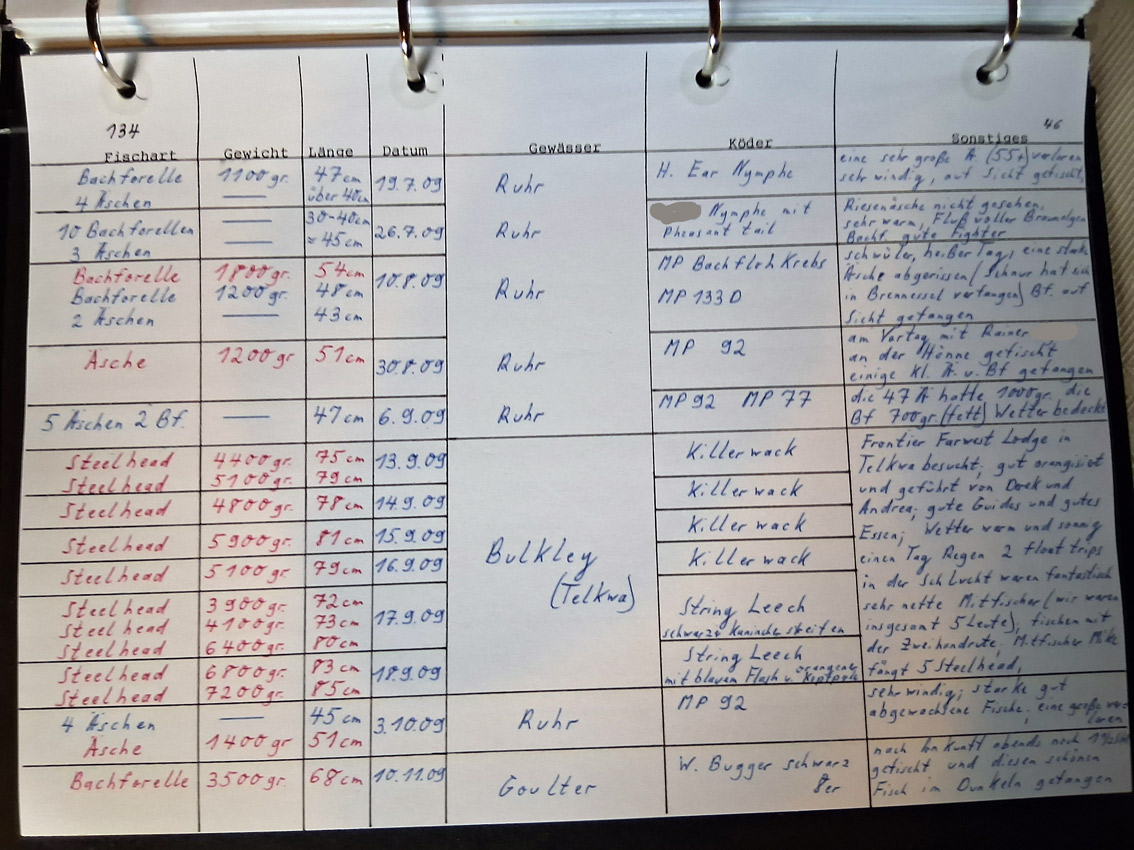 134
46
Fischart Gewicht Länge Datum Gewässer Köder Sonstiges
Bachforelle 1100 gr. 47 cm 19.7.09 Ruhr H. Ear Nymphe eine sehr große Ä. (55+) verloren
4 Äschen — über 40 cm sehr windig, auf Sicht gefischt,
10 Bachforellen — 30-40 cm 26.7.09 Ruhr Nymphe mit Riesenäsche nicht gesehen.
3 Äschen — ≈ 45 cm Pheasant tail sehr warm, Fluß voller Braunalgen
Bachf. gute Fighter
Bachforelle 1800 gr. 54 cm 10.8.09 Ruhr MP Bachfloh Krebs schwüler, heißer Tag, eine starke
Bachforelle 1200 gr. 48 cm MP 133 D Äsche abgerissen (Schnur hat sich
2 Äschen — 43 cm in Brennessel verfangen) Bf. auf
Sicht gefangen
Äsche 1200 gr 51 cm 30.8.09 Ruhr MP 92 am Vortag mit Rainer
an der Hönne gefischt
einige kl. Ä. u. Bf gefangen
5 Äschen 2 Bf. — 47 cm 6.9.09 Ruhr MP 92 MP 77 die 47 Ä hatte 1000 gr. die
Bf 700 gr. (fett) Wetter bedeckt
Steelhead 4400 gr. 75 cm 13.9.09 Bulkley (Telkwa) Killerwack Frontier Farwest Lodge in
Steelhead 5100 gr. 79 cm Telkwa besucht; gut orangisiert
Steelhead 4800 gr. 78 cm 14.9.09 Killerwack und geführt von Derek und
Andrea; gute Guides und gutes
Steelhead 5900 gr. 81 cm 15.9.09 Killerwack Essen; Wetter warm und sonnig
Steelhead 5100 gr. 79 cm 16.9.09 Killerwack einen Tag Regen 2 float trips
in der Schlucht waren fantastisch
Steelhead 3900 gr. 72 cm 17.9.09 String Leech sehr nette Mitfischer (wir waren
Steelhead 4100 gr. 73 cm schwarze Kaninchenstreifen insgesamt 5 Leute); fischen mit
Steelhead 6400 gr. 80 cm der Zweihandrute, Mitfischer Mike
Steelhead 6800 gr. 83 cm 18.9.09 String Leech fängt 5 Steelhead,
Steelhead 7200 gr. 85 cm mit blauem Flash u. orangener Kopfperle
4 Äschen — 45 cm 3.10.09 Ruhr MP 92 sehr windig; starke gut
Äsche 1400 gr 51 cm abgewachsene Fische; eine große verloren
Bachforelle 3500 gr. 68 cm 10.11.09 Goulter W. Bugger schwarz 8er nach Ankunft abends noch
gefischt und diesen schönen
Fisch im Dunkeln gefangen